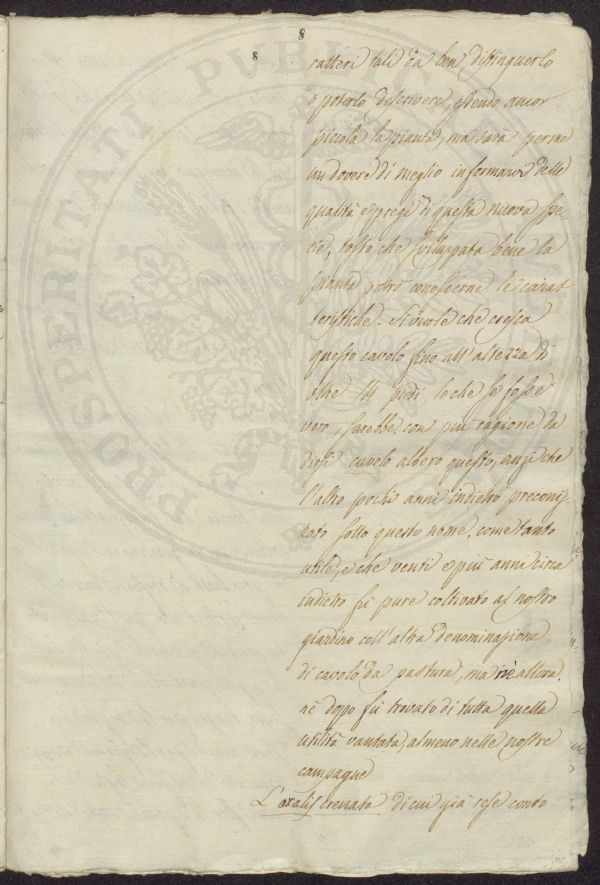 8
8
ratteri tali da ben distinguerlo
o poterlo descrivere, essendo ancor
piccola la pianta, ma sara per me
un dovere di meglio informarvi delle
qualità e pregi di questa nuova spe-
cie, tosto che sviluppata bene la
pianta potrò conoscerne le carat-
teristiche. Si vuole che cresca
questo cavolo fino all'altezza di
oltre 14 piedi loche se fosse
vero, sarebbe con più ragione da
dirsi cavolo albero questo, anzi che
l'altro pochi anni indietro preconiz-
zato sotto questo nome, come tanto
utile, e che venti e più anni circa
indietro fù pure coltivato al nostro
giardino coll'altra denominazione
di cavolo da pastura, ma nè allora,
nè dopo fù trovato di tutta quella
utilità vantata, almeno nelle nostre
campagne
L'oxalis crenata di cui già rese conto
PROSPERITATI PUBLIC